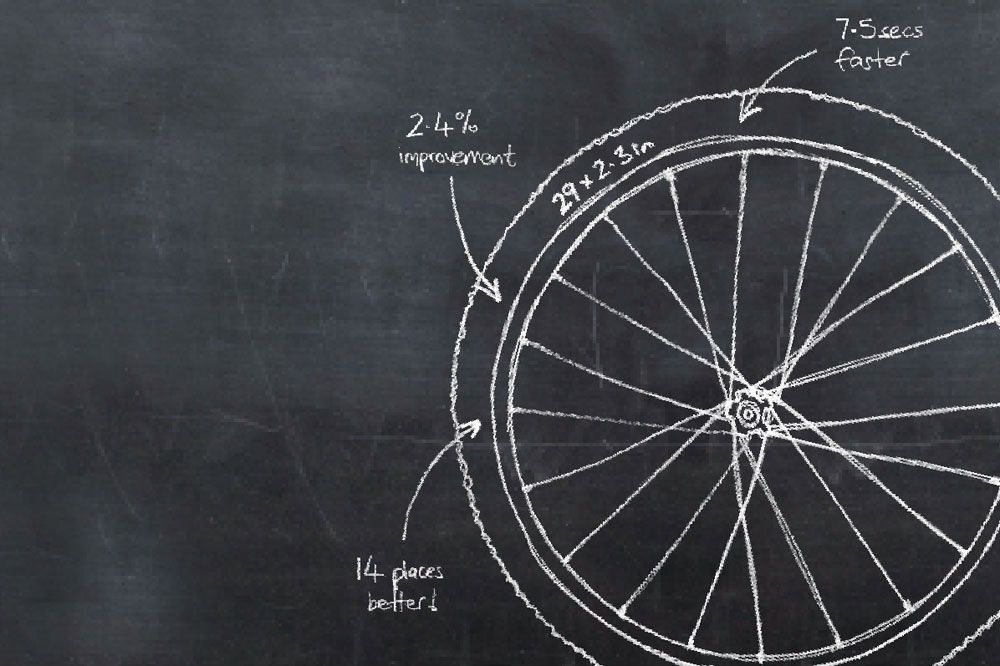 7.5secs
faster
2.4%
improvement
29 x 2.3in
14 places
better!